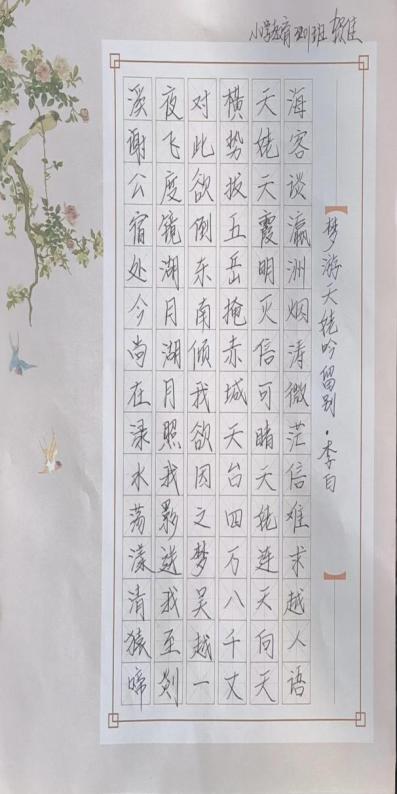 小学教育
梦游天姥吟留别·李白
海客谈瀛洲烟涛微茫信难求越人语
天姥天霞明灭信可睹天姥连天向天
横势拔五岳掩赤城天台四万八千丈
对此欲倒东南倾我欲因之梦吴越一
夜飞度镜湖月湖月照我影送我至剡
溪谢公宿处今尚在渌水荡漾清猿啼